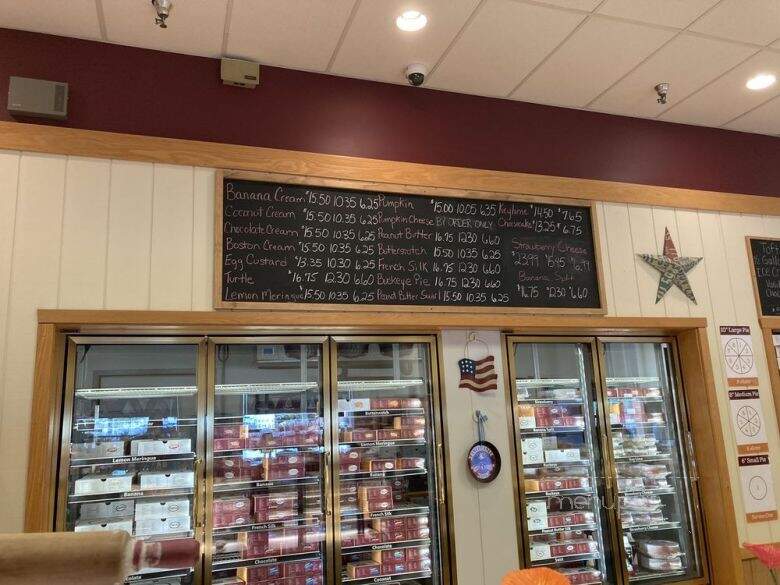 Banana Cream $15.50 10.35 6.25
Coconut Cream $15.50 10.35 6.25
Chocolate Cream $15.50 10.35 6.25
Boston Cream $15.50 10.35 6.25
Egg Custard $13.35 10.30 6.25
Turtle $16.75 12.30 6.60
Lemon Meringue $15.50 10.35 6.25
Pumpkin $15.00 10.05 6.35
Pumpkin Cheese BY ORDER ONLY
Peanut Butter 16.75 12.30 6.60
Butterscotch 15.50 10.35 6.25
French Silk 16.75 12.30 6.60
Buckeye Pie 16.75 12.30 6.60
Peanut Butter Swirl 15.50 10.35 6.25
Keylime $14.50 $7.65
Cheesecake $13.25 $6.75
Strawberry Cheese
Banana Split
$16.75 $12.30 $6.60
10" Large Pie
8" Medium Pie
6" Small Pie
Lemon Meringue
Banana
French Silk
Chocolate
Butterscotch
Lemon Meringue
French Silk
Chocolate
Coconut